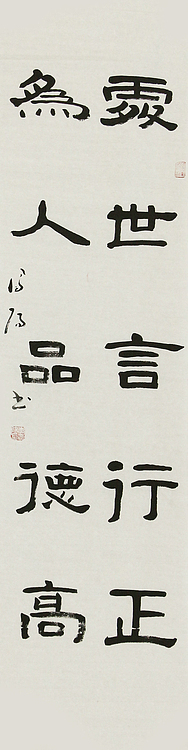 處世言行正
為人品德高
书